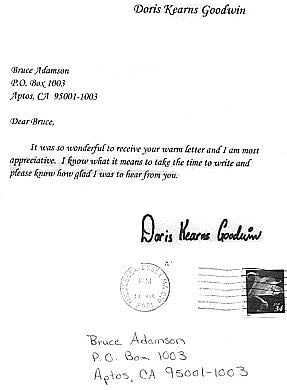 Doris Kearns Goodwin
Bruce Adamson
P.O. Box 1003
Aptos, CA 95001-1003
Dear Bruce,
It was so wonderful to receive your warm letter and I am most
appreciative. I know what it means to take the time to write and
please know how glad I was to hear from you.
Doris Kearns Goodwin
PM
34
Bruce Adamson
P.O. Box 1003
Aptos, CA 95001-1003